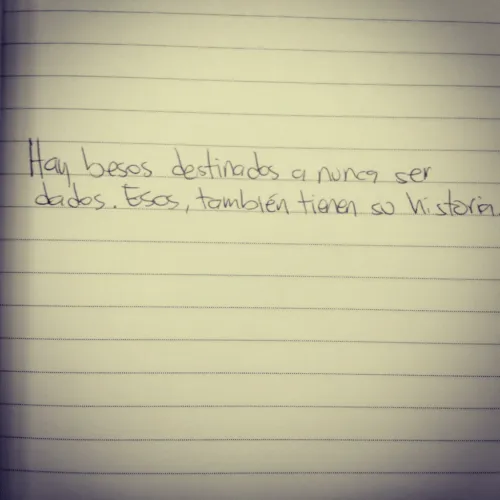 Hay besos destinados a nunca ser
dados. Esos, también tienen su historia.